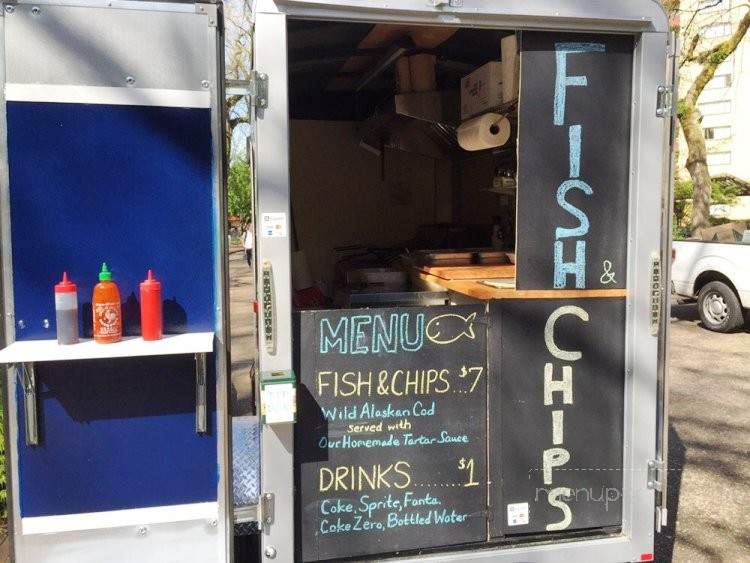 FISH
&
CHIPS
MENU
FISH & CHIPS...$7
Wild Alaskan Cod
served with
Our Homemade Tartar Sauce
DRINKS........$1
Coke, Sprite, Fanta.
Coke Zero, Bottled Water
menup